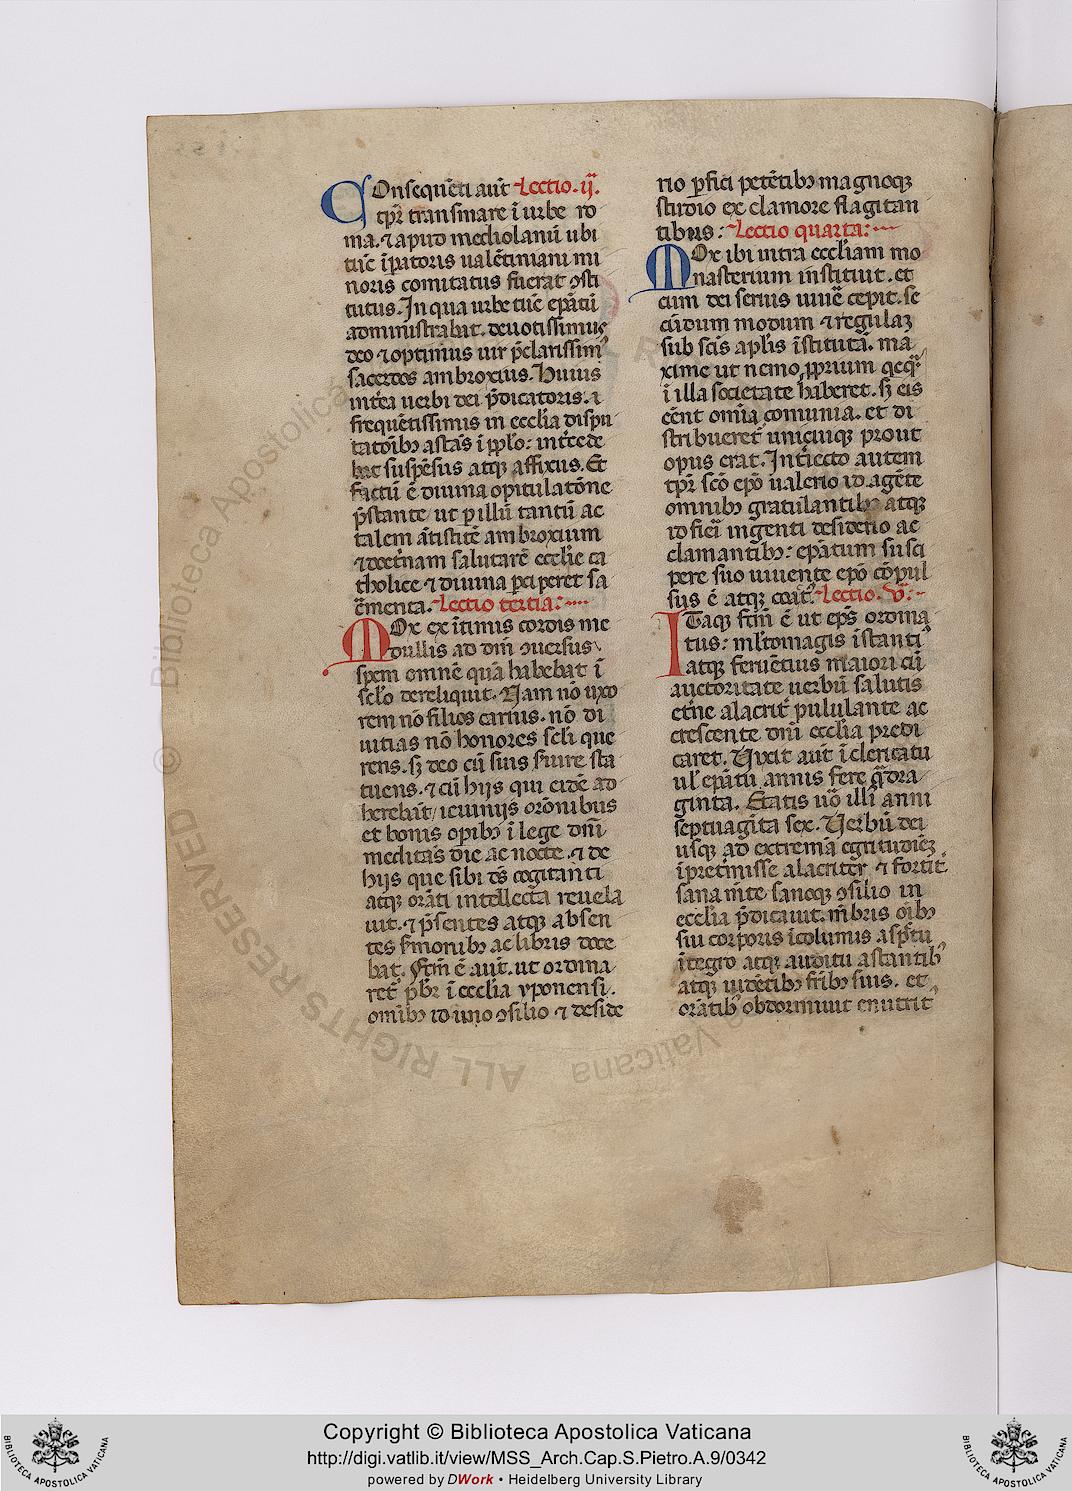 COnsequēti aut̄ Lectio .ij̄.
tp̄r̄ transmare ī urbe ro
ma. ⁊ apud mediolanū ubi
tūc īp̄atoris ualētiniani mi
noris comitatus fuerat ꝯsti
tutus. In qua urbe tūc ep̄atū
administrabat. deuotissimus
deo ⁊ optimus uir p̄clarissim᷒
sacerdos ambroxius. Huius
int̄ea uerbi dei p̄dicatoris. ⁊
frequētissimis in ecclīa dispu
tatōībꝫ astās ī pp̄lo: int̄cede
bat suspēsus atqꝫ affixus. Et
factū ē diuina opitulatōne
p̄stante ut ꝑ illū tantū ac
talem ātistitē ambroxium
⁊ doct̄nam salutarē ecclīe ca
tholice ⁊ diuina ꝑciperet sa
c̄menta. Lectio tertia:
MOx ex ītimis cordis me
dullis ad dn̄m ꝯuersus
spem omnē quā habebat ī
sclo dereliquit. Nam nō uxo
rem nō filios carius. nō di
uitias nō honores scli que
rens. sꝫ deo cū suis s̄uire sta
tuens. ⁊ cū hijs qui eidē ad
herebāt ieiunijs orōnibus
et bonis opibꝫ ī lege dn̄i
meditās die ac nocte. ⁊ de
hijs que sibi dꝰ cogitānti
atqꝫ orāti intellecta reuela
uit. ⁊ p̄sentes atqꝫ absen
tes s̄monibꝫ ac libris doce
bat. Fcm̄ ē aut̄. ut ordina
ret᷑ p̄br̄ ī ecclīa yponensi.
omībꝫ id uno ꝯsilio ⁊ deside
rio p̄fici petētibꝫ magnoqꝫ
studio ex clamore flagitan
tibus: Lectio quarta:
MOx ibi intra eccliam mo
nasterium instituit. et
cum dei seruis uiuē cepit. se
cūdum modum ⁊ regulaꝫ
sub scīs apl̄is īstitutā. ma
xime ut nemo pprium qcqꝫ
ī illa societate haberet. sꝫ eis
cēnt omīa comunia. et di
stribueret᷑ unicuiqꝫ prout
opus erat. Int̄iecto autem
tp̄r̄ scō ep̄o ualerio id agēte
omnibꝫ gratulantibꝫ atqꝫ
id fieri ingenti desiderio ac
clamantibꝫ: ep̄atum susci
pere suo uiuente ep̄o cōpul
sus ē atqꝫ coat᷒. Lectio .v̄.
ITaqꝫ fcm̄ ē ut ep̄s ordina
tus: ml̄tomagis īstanti᷒
atqꝫ feruētius maiori cū
auctoritate uerbū salutis
et̄ne alacrit̄ pululante ac
crescente dn̄i ecclīa predi
caret. Vixit aut̄ ī clericatu
ul̄ ep̄atu annis fere q̄dra
ginta. Etatis uō illī anni
septuagīta sex. Verbū dei
usqꝫ ad extremā egritudinēꝫ
īpretmisse alacriter ⁊ fortit᷑
sana mēte sanoqꝫ ꝯsilio in
ecclīa p̄dicauit. mēbris oībꝫ
sui corporis īcolumis aspc̄tu
ītegro atqꝫ auditu astantibꝫ
atqꝫ uidētibꝫ fr̄ibꝫ suis. et
orātibꝫ obdormiuit enutrit᷒
© Biblioteca Apostolica Vaticana
ALL RIGHTS RESERVED
BIBLIOTECA APOSTOLICA VATICANA
Copyright © Biblioteca Apostolica Vaticana
http://digi.vatlib.it/view/MSS_Arch.Cap.S.Pietro.A.9/0342
powered by DWork • Heidelberg University Library
BIBLIOTECA APOSTOLICA VATICANA